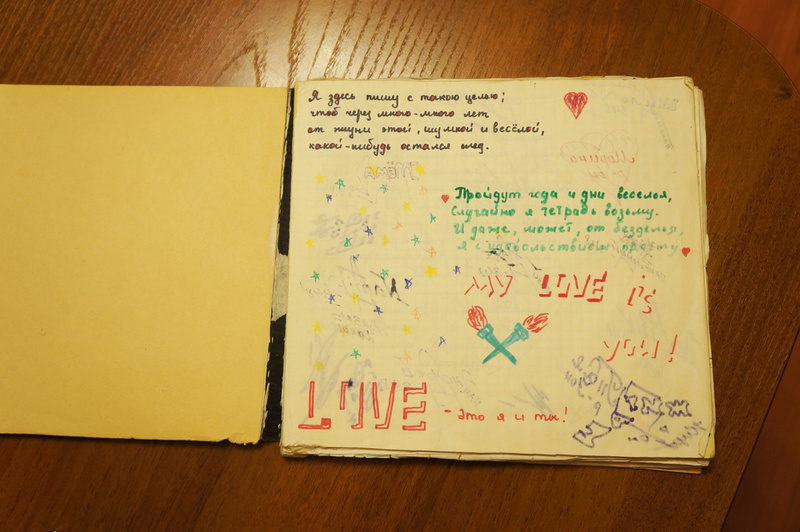 Я здесь пишу с такою целью;
чтоб через много-много лет
от жизни этой, шумной и весёлой,
какой-нибудь остался след.
Марина
Тёма
Пройдут года и дни веселья,
Случайно я тетрадь возьму.
И даже, может, от безделья,
я с удовольствием прочту.
MY LOVE is
you!
LOVE
- это я и ты!